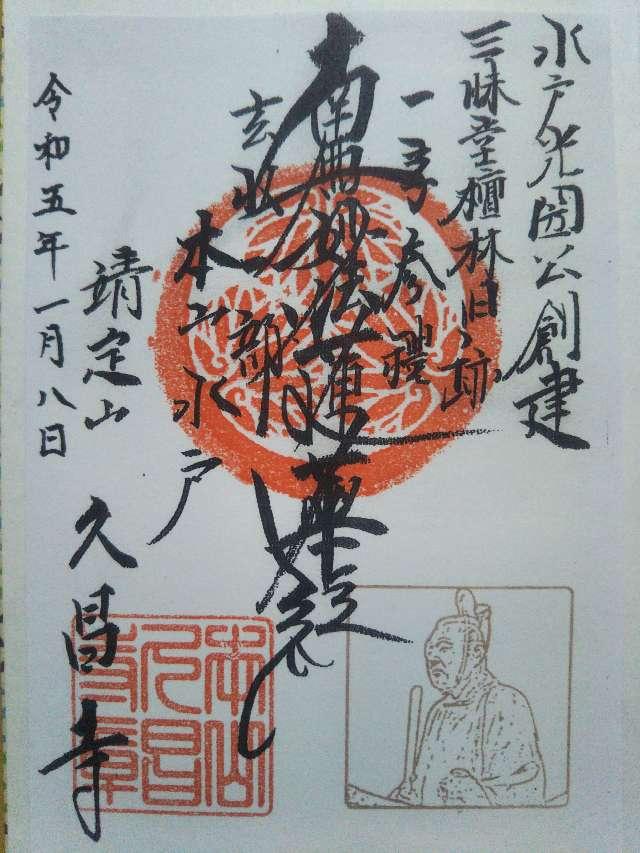 水戸光圀公創建
三昧堂檀林旧跡
参禮
南無妙法蓮華経
本山水戸
靖定山
久昌寺
令和五年一月八日